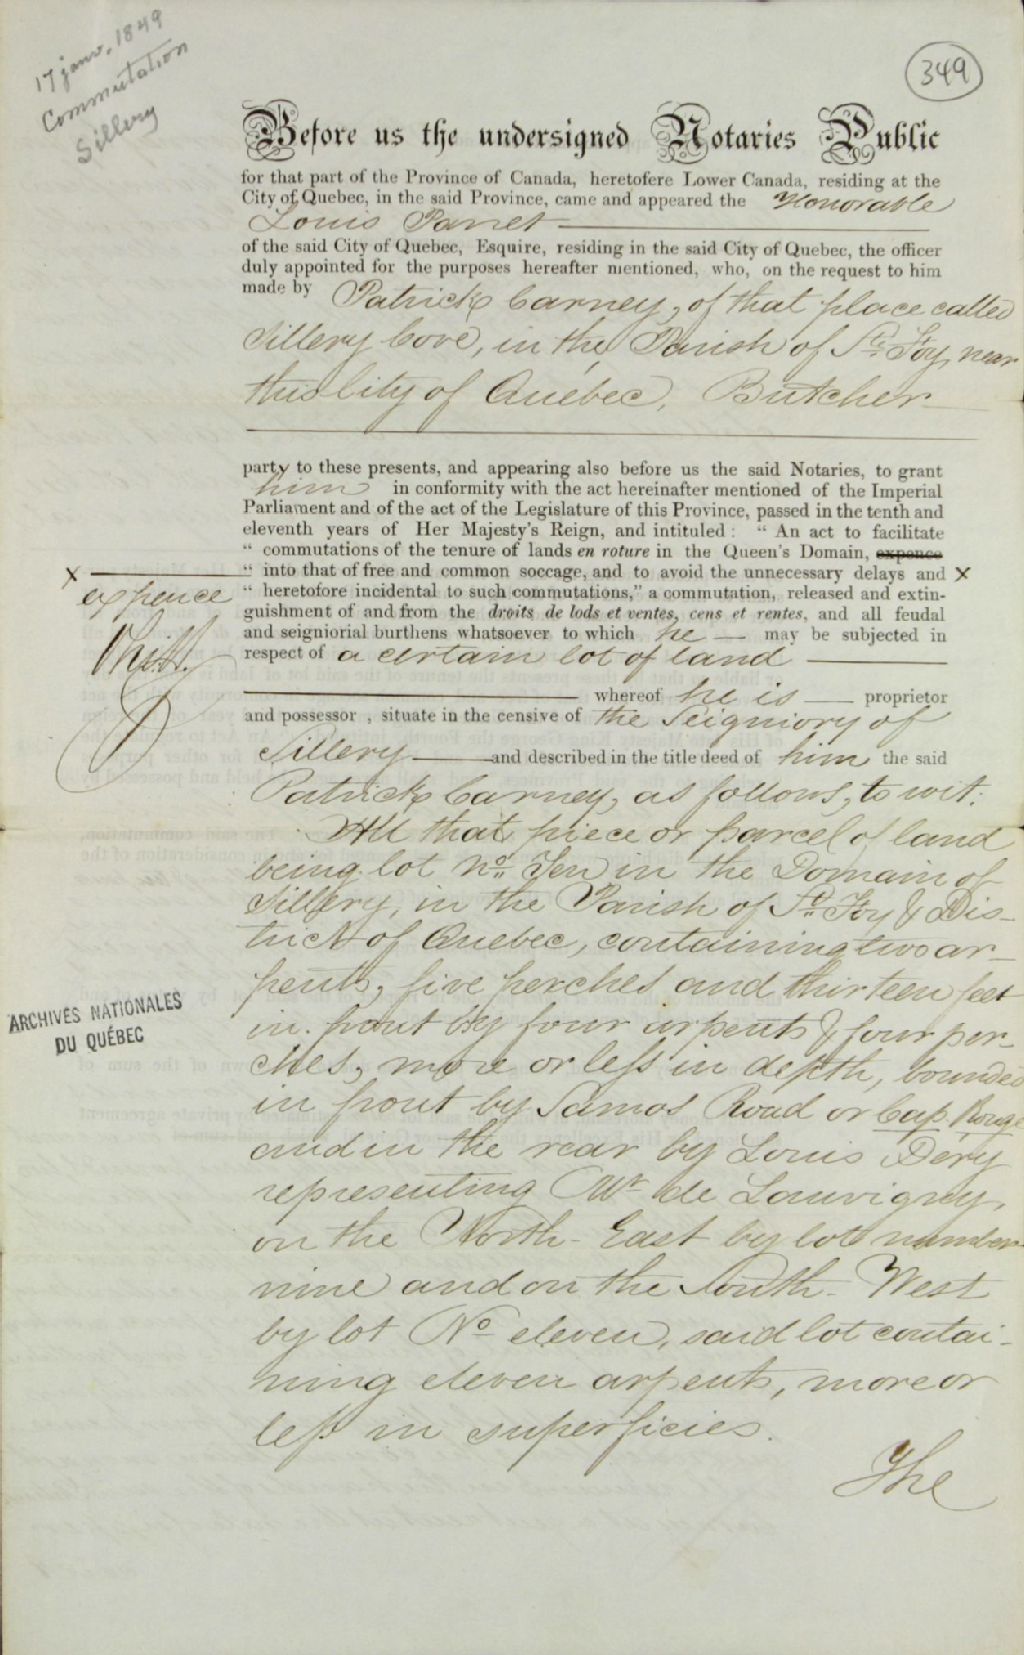 17 janv. 1849
Commutation
Sillery
349
Before us the undersigned Notaries Public
for that part of the Province of Canada, heretofere Lower Canada, residing at the
City of Quebec, in the said Province, came and appeared the Honorable
Louis Panet
of the said City of Quebec, Esquire, residing in the said City of Quebec, the officer
duly appointed for the purposes hereafter mentioned, who, on the request to him
made by Patrick Carney, of that place called
Sillery Cove, in the Parish of Ste. Foy, near
this City of Québec, Butcher
party to these presents, and appearing also before us the said Notaries, to grant
him in conformity with the act hereinafter mentioned of the Imperial
Parliament and of the act of the Legislature of this Province, passed in the tenth and
eleventh years of Her Majesty's Reign, and intituled : " An act to facilitate
" commutations of the tenure of lands en roture in the Queen's Domain, expence
" into that of free and common soccage, and to avoid the unnecessary delays and X
X expence
" heretofore incidental to such commutations," a commutation, released and extin-
guishment of and from the droits de lods et ventes, cens et rentes, and all feudal
and seigniorial burthens whatsoever to which he may be subjected in
respect of a certain lot of land
whereof he is proprietor
and possessor , situate in the censive of the Seigniory of
Sillery and described in the title deed of him the said
Patrick Carney, as follows, to wit:
All that piece or parcel of land
being lot No. Ten in the Domain of
Sillery, in the Parish of Ste. Foy & Dis-
trict of Quebec, containing two ar-
pents, five perches and thirteen feet
in front by four arpents & four per-
ches, more or less in depth, bounded
in front by Samos Road or Cap Rouge
and in the rear by Louis Déry
representing Mr. de Louvigny,
on the North-East by lot number
nine and on the South-West
by lot No eleven, said lot contai-
ning eleven arpents, more or
less in superficies.
The
ARCHIVES NATIONALES
DU QUÉBEC